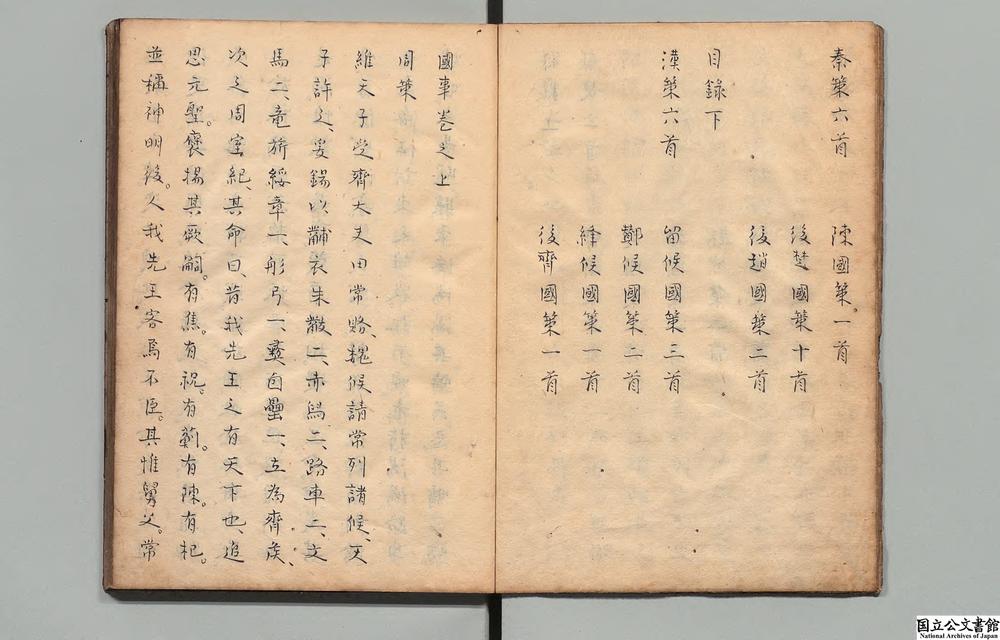 秦策六首　陳國策一首
後楚國策十首
後趙國策二首
目錄下
漢策六首　留候國策三首
鄭候國策二首
絳候國策一首
後齊國策一首
國事卷之上
周策
維天子受齊大夫田常賂、魏候請常列諸候、天
子許之、妥錫以黼衣朱黻二、赤舄二、路車二、文
馬二、竜旂綏章、彤弓一、彝卣罍一、立為齊矦、
次之周室紀、其命曰、昔我先王之有天下也、追
思元聖。褒揚其厥嗣。有焦。有祝。有薊。有陳。有杞。
並稱神明後。又我先王客焉不臣。其惟舅父。常
国立公文書館
National Archives of Japan